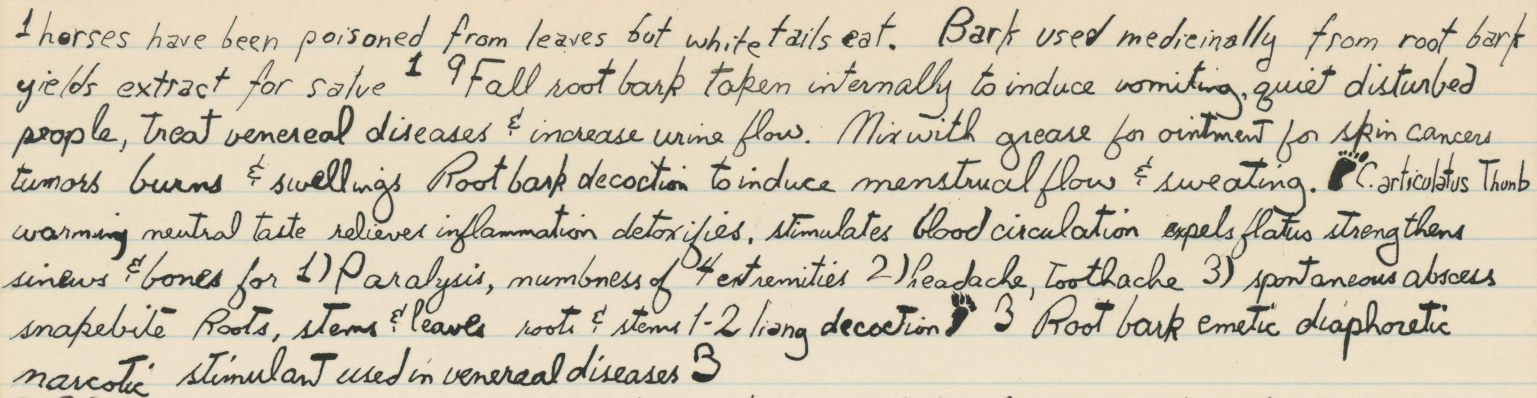 1 horses have been poisoned from leaves but white tails eat. Bark used medicinally from root bark
yields extract for salve 1 9 Fall root bark taken internally to induce vomiting, quiet disturbed
people, treat venereal diseases & increase urine flow. Mix with grease for ointment for skin cancers
tumors burns & swellings Root bark decoction to induce menstrual flow & sweating. C. articulatus Thunb
warming neutral taste relieves inflammation detoxifies, stimulates blood circulation expels flatus strengthens
sinews & bones for 1) Paralysis, numbness of 4 extremities 2) headache, toothache 3) spontaneous abscess
snakebite Roots, stems & leaves roots & stems 1-2 liang decoction 3 Root bark emetic diaphoretic
narcotic stimulant used in venereal diseases 3